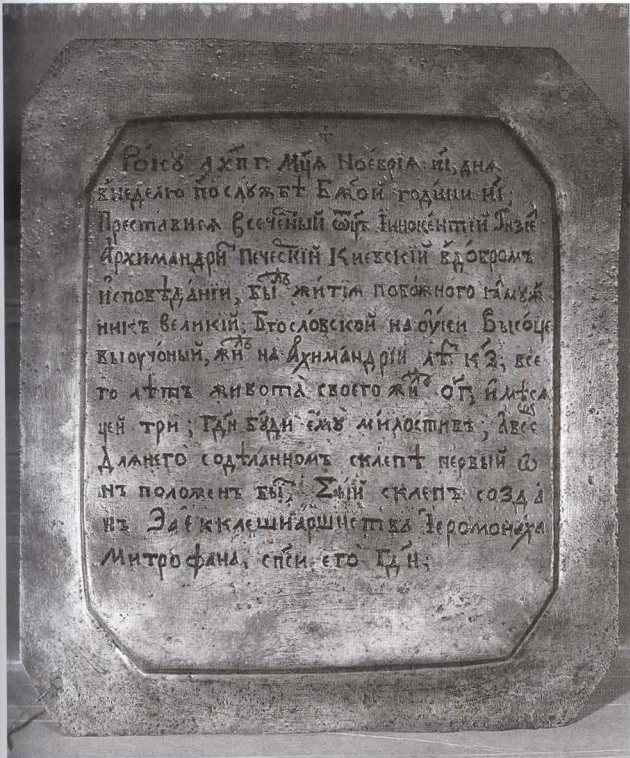 Року ҂АХПГ: Мц҃а Ноеврїа: ИІ, дня
в неделю по службѣ Бж҃ой години ИІ
Преставися всечесный ѡтцъ Їннокентїй Гизїе
Архимандрит Печескїй Киевскїй в добромъ
исповѣданїи, былъ житїя побожного ялмуж
никъ великїй; Бгословской науки высоце
выучоный, жилъ на Архимандрїи лѣтъ КЗ, все
го лѣтъ живота своего жилъ ОГ, и мѣся
цей три; Гдн҃ буди емꙋ милостивъ;
Для него содѣланномъ склепѣ первый ѡ
нъ положенъ бысть, Сый склепъ созда
нъ За Екклешиаршиства Їеромонаха
Митрофана, спси его Гдн҃;